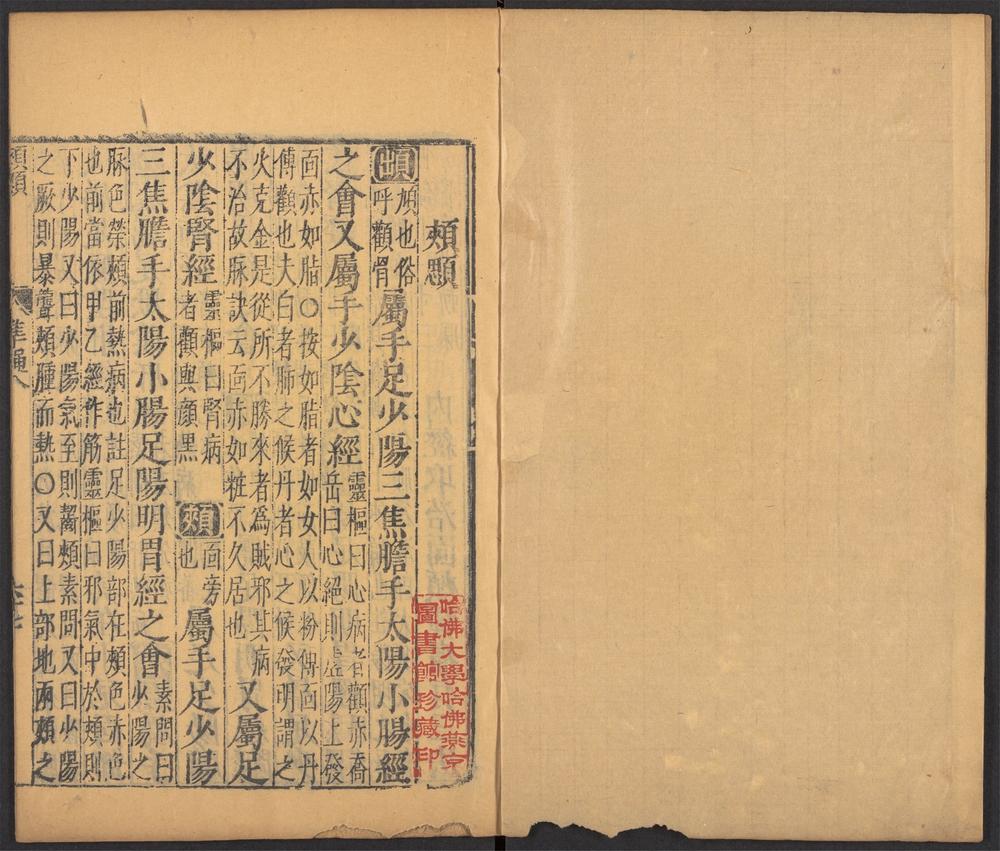 頰
䪼頄也俗
呼顴骨
屬手足少陽三焦膽手太陽小腸經
之會又屬手少陰心經
靈樞曰心病者顴赤喬
岳曰心絕則虛陽上發
面赤如脂○按如脂者如女人以粉傅面以丹
傅顴也夫白者肺之候丹者心之候發明謂之
火克金是從所不勝來者爲賊邪其病
不治故脉訣云面赤如粧不久居也
又屬足
少陰腎經
靈樞曰腎病
者顴與顏黑
頰
面旁
也
屬手足少陽
三焦膽手太陽小腸足陽明胃經之會
素問曰
少陽之
脉色榮頰前熱病也註足少陽部在頰色赤色
也前當依甲乙經作筋靈樞曰邪氣中於頰則
下少陽又曰少陽氣至則齧頰素問又曰少陽
之厥則暴聾頰腫而熱○又曰上部地兩頰之
準繩八
哈佛大學哈佛燕京
圖書館珍藏印